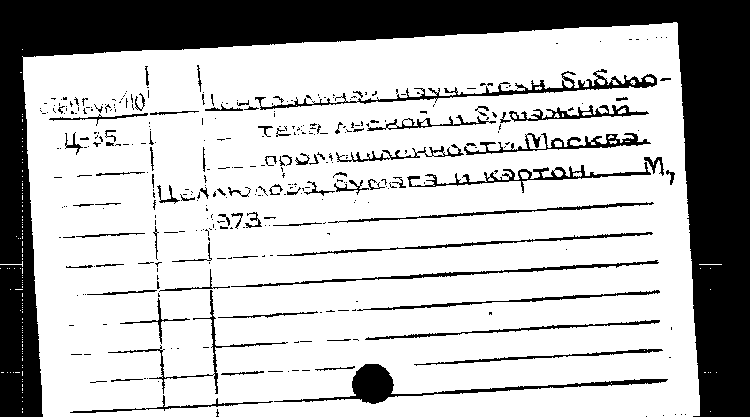 Центральная науч.-техн. библио-
Ц-35 тека лесной и бумажной
промышленности. Москва.
Целлюлоза, бумага и картон. М.,
1973-